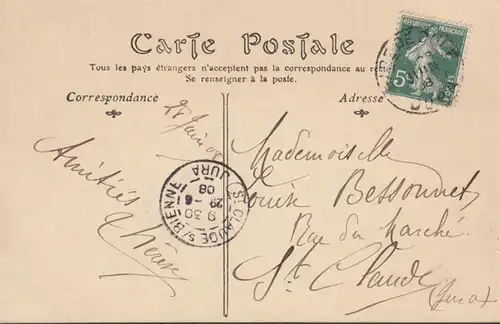 Carte Postale
Tous les pays étrangers n'acceptent pas la correspondance au recto
Se renseigner à la poste.
Correspondance
Adresse
RÉPUBLIQUE FRANÇAISE
5c
28 Juin 08
Amitiés
Mademoiselle
Louise Bessonnet
Rue du Marché
St Claude
(Jura)
ST CLAUDE S/ BIENNE
9 30
29 - 6
08
JURA